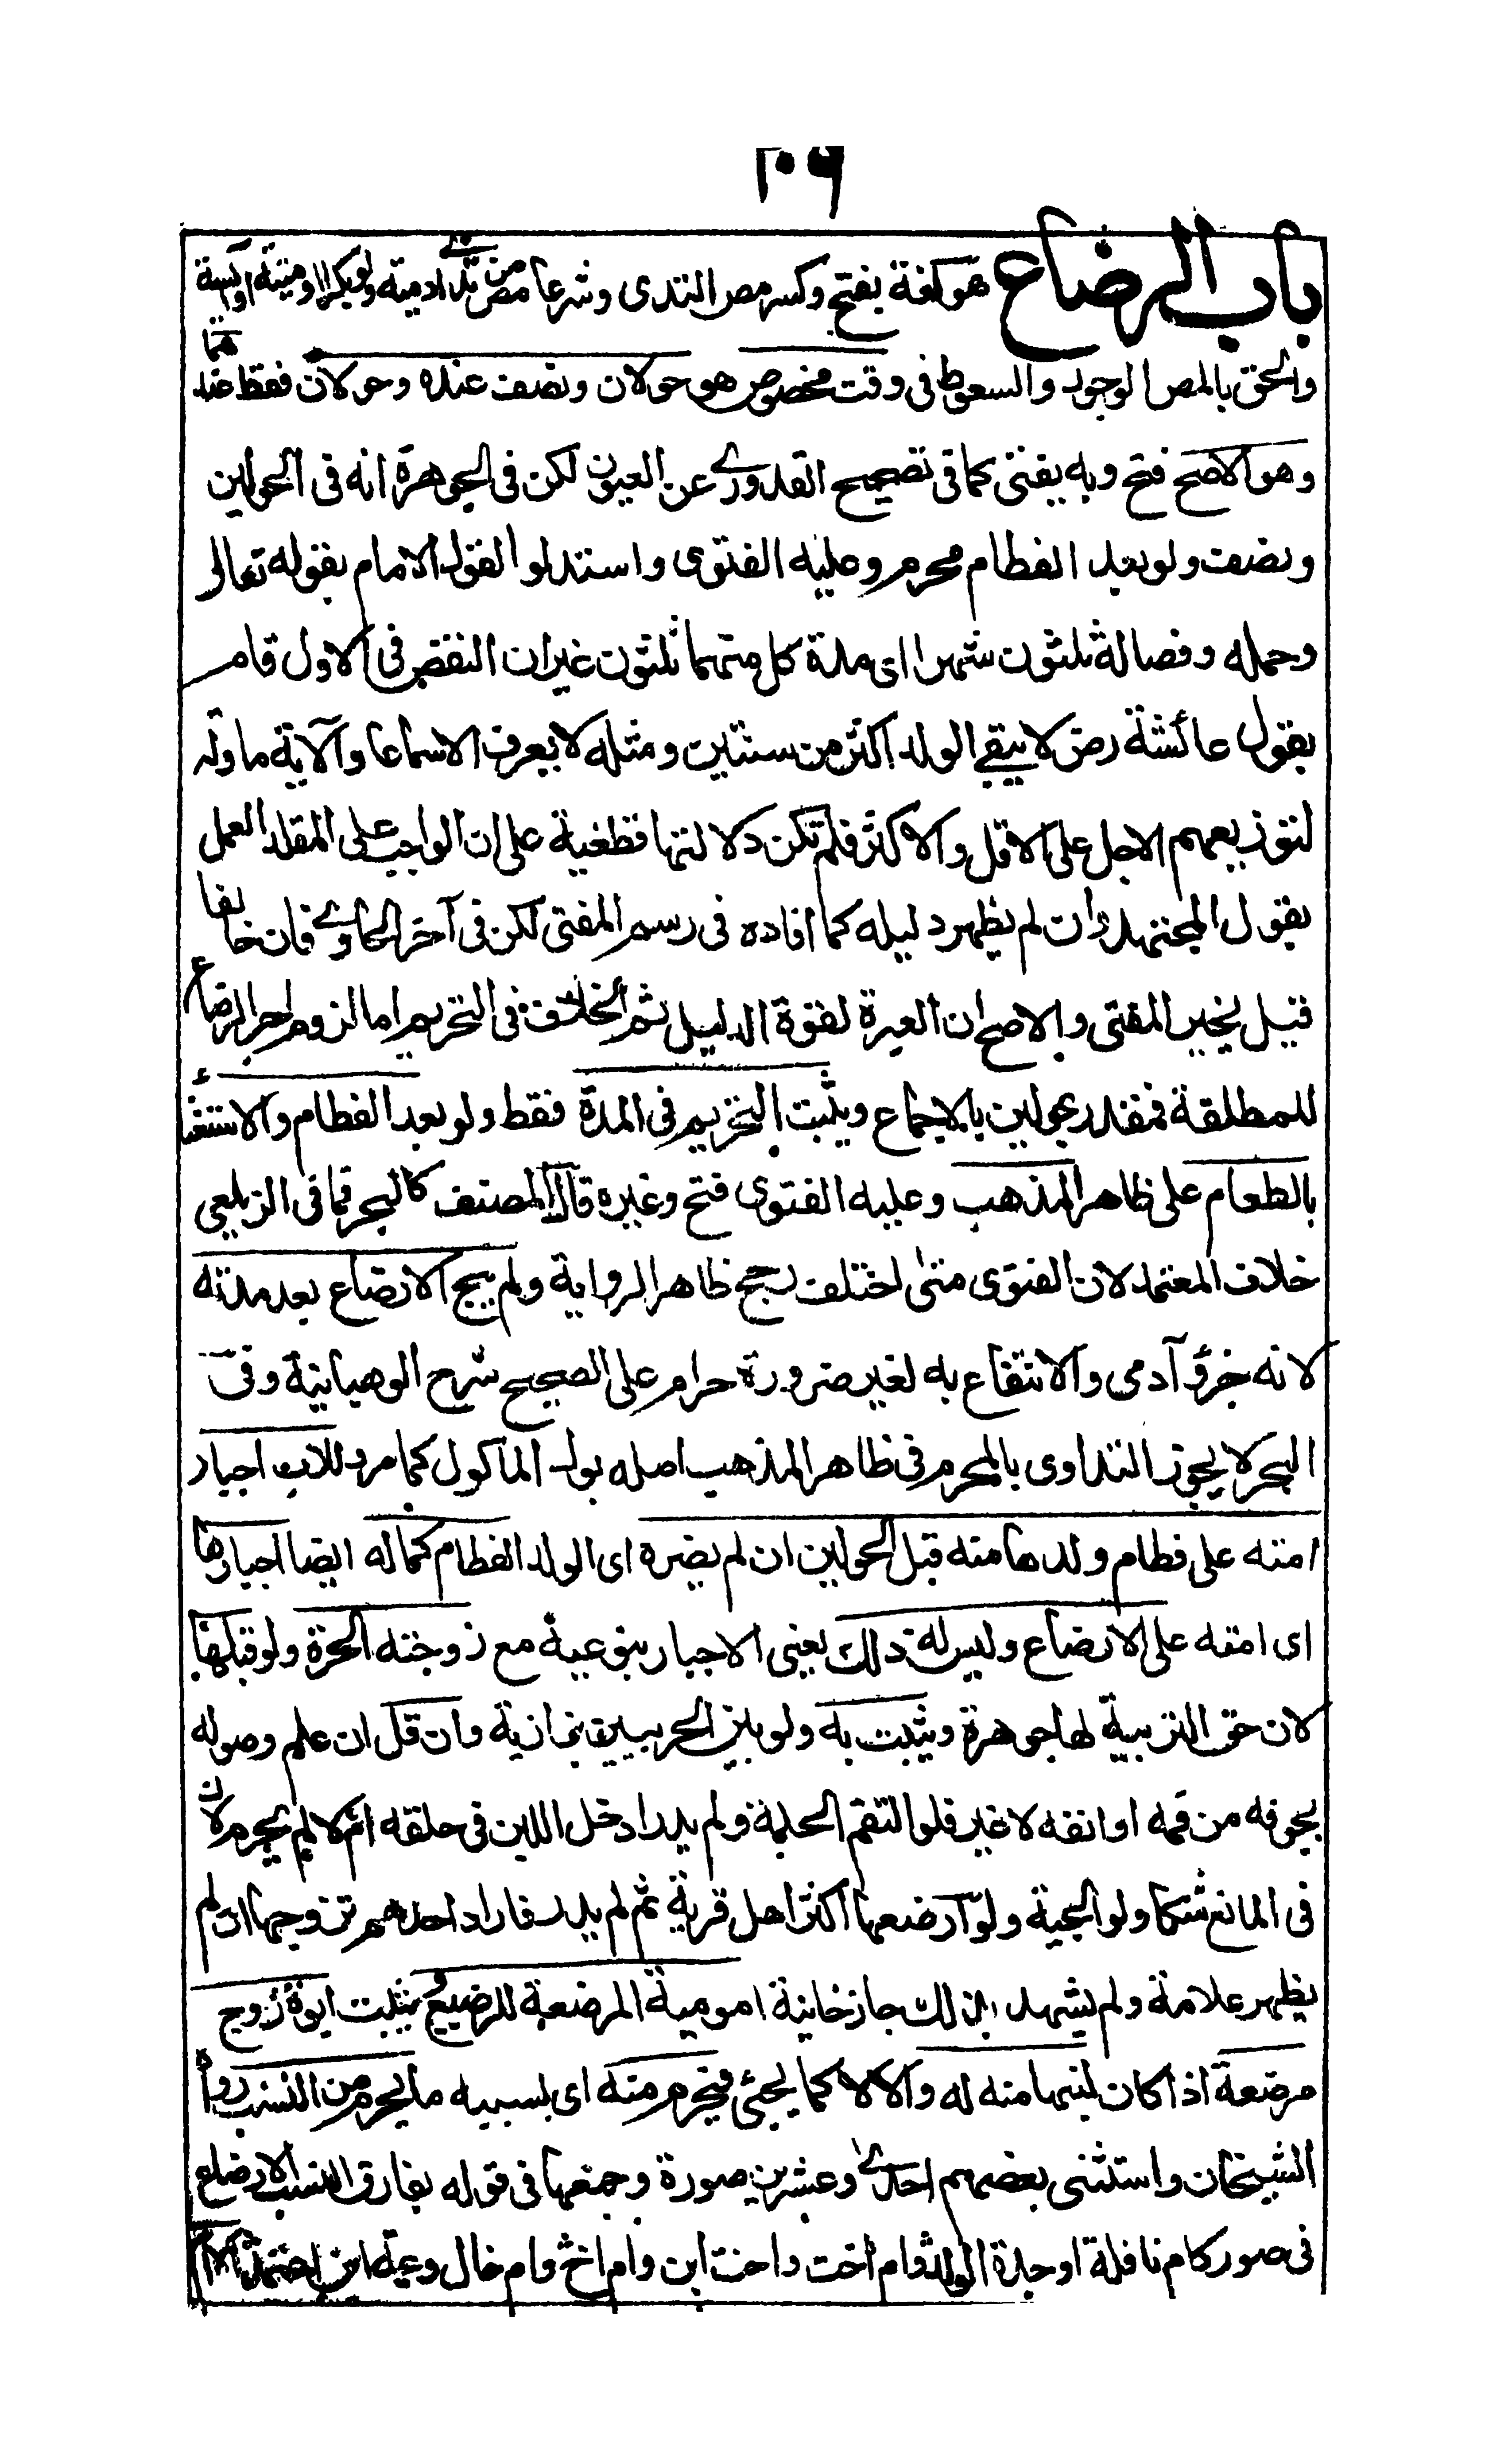 ٢٠٦
باب الرضاع هو لغة بفتح وكسر مص الثدى وشرعا مص من ثدى ادمية ولو بكرا او ميتة او آيسة
والحق بالمص الوجور والسعوط فى وقت مخصوص هو حولان ونصف عنده وحولان فقط عندهما
وهو الاصح فتح وبه يفتى كما فى تصحيح القدورى عن العيون لكن فى الجوهرة انه فى الحولين
ونصف ولو بعد الفطام محرم وعليه الفتوى واستدلوا لقول الامام بقوله تعالى
وحمله وفصاله ثلثون شهرا اى مدة كل منهما ثلثون غير ان النقص فى الاول قام
بقول عائشة رض لا يبقى الولد اكثر من سنتين ومثله لا يعرف الا سماعا والآية ماولة
لتوزيعهم الاجل على الاقل والاكثر فلم تكن دلالتها قطعية على ان الواجب على المقلد العمل
بقول المجتهد وان لم يظهر دليله كما افاده فى رسم المفتى لكن فى آخر الحاوى فان خالفا
قيل يخير المفتى والاصح ان العبرة لقوة الدليل ثم الخلاف فى التحريم اما لزوم اجر الرضاع
للمطلقة فمقدر بحولين بالاجماع ويثبت التحريم فى المدة فقط ولو بعد الفطام والاستغناء
بالطعام على ظاهر المذهب وعليه الفتوى فتح وغيره قال المصنف كالبحر فما فى الزيلعى
خلاف المعتمد لان الفتوى متى اختلف رجح ظاهر الرواية ولم يبح الارضاع بعد مدته
لانه جزؤ آدمى والانتفاع به لغير ضرورة حرام على الصحيح شرح الوهبانية وفى
البحر لا يجوز التداوى بالمحرم فى ظاهر المذهب اصله بول الماكول كما مر وللاب اجبار
امته على فطام ولدها منه قبل الحولين ان لم يضره اى الولد الفطام كما له ايضا اجبارها
اى امته على الارضاع وليس له ذلك يعنى الاجبار بنوعيه مع زوجته الحرة ولو قبلهما
لان حق التربية لها جوهرة ويثبت به ولو بين الحربيين بزازية وان قل ان علم وصوله
بجوفه من فمه او انفه لا غير فلو التقم الحلمة ولم يدر ادخل اللبن فى حلقه ام لا لم يحرم لان
فى المانع شكا ولو الجية ولو ارضعها اكثر اهل قرية ثم لم يدر فاراد احدهم تزوجها ان لم
يظهر علامة ولم يشهد بذلك جاز خانية امومية المرضعة للرضيع ويثبت ابوة زوج
مرضعة اذا كان لبنها منه له والا لا كما يجئ فيحرم منه اى بسببه ما يحرم من النسب رواه
الشيخان واستثنى بعضهم احدى وعشرين صورة وجمعها فى قوله يفارق النسب الارضاع
فى صور كام نافلة او جدة الولد وام اخت واخت ابن وام اخ وام خال وعمة ابن